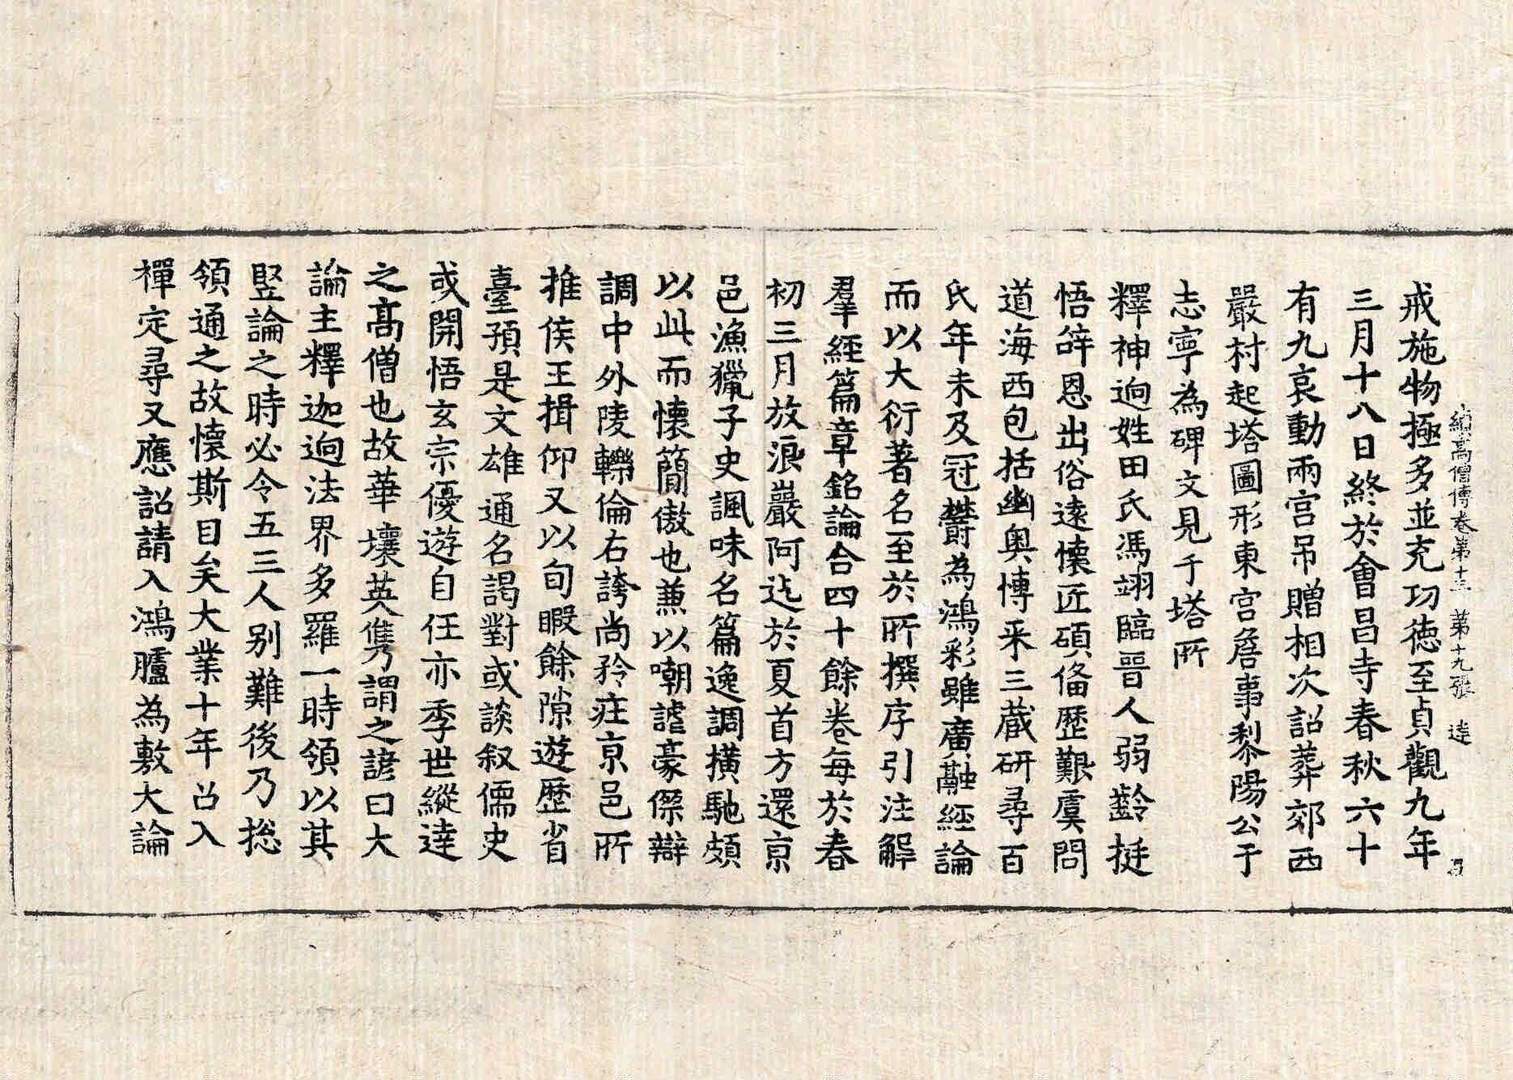 續高僧傳卷第十三 第十九張 達
戒施物極多並充功德至貞觀九年
三月十八日終於會昌寺春秋六十
有九哀動兩宮吊贈相次詔葬郊西
嚴村起塔圖形東宮詹事黎陽公于
志寧為碑文見于塔所
釋神逈姓田氏馮翊臨晉人弱齡挺
悟辤恩出俗遠懷匠碩俻歷艱虞問
道海西包括幽奧愽采三藏研尋百
氏年未及冠欝為鴻彩雖廣融經論
而以大衍著名至於所撰序引注解
羣經篇章銘論合四十餘卷每於春
初三月放浪巖阿迄於夏首方還京
邑漁獵子史諷味名篇逸調橫馳頗
以此而懷簡傲也兼以嘲謔豪傑辯
調中外陵轢倫右誇尚矜莊京邑所
推侯王揖仰又以旬暇餘隙遊歷省
臺預是文雄通名謁對或談叙儒史
或開悟玄宗優遊自任亦季世縱達
之高僧也故華壤英雋謂之諺曰大
論主釋迦逈法界多羅一時領以其
竪論之時必令五三人别難後乃捴
領通之故懷斯目矣大業十年召入
禪定尋又應詔請入鴻臚為敷大論